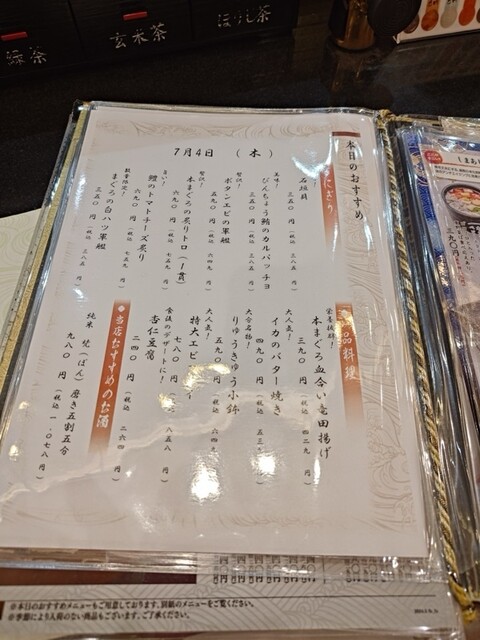 緑茶
玄米茶
ほうじ茶
本日のおすすめ
7月4日 (木)
にぎり
石垣貝
三五〇 円 (税込 三八五 円)
美味!
びんちょう鮪のカルパッチョ
三五〇 円 (税込 三八五 円)
贅沢!
ボタンエビの軍艦
五九〇 円 (税込 六四九 円)
贅沢!
本まぐろの炙りトロ (1貫)
六九〇 円 (税込 七五九 円)
旨い!
鰹のトマトチーズ炙り
六九〇 円 (税込 七五九 円)
数量限定!
まぐろの白ハツ軍艦
三五〇 円 (税込 三八五 円)
一品料理
栄養抜群!
本まぐろ血合い竜田揚げ
三九〇 円 (税込 四二九 円)
大人気!
イカのバター焼き
四九〇 円 (税込 五三九 円)
大分名物!
りゅうきゅう小鉢
五九〇 円 (税込 六四九 円)
大人気!
特大エビフライ
七八〇 円 (税込 八五八 円)
食後のデザートに!
杏仁豆腐
二四〇 円 (税込 二六四 円)
●当店おすすめのお酒
純米 梵(ぼん) 磨き五割五分
九八〇 円 (税込 一,〇七八 円)
※本日のおすすめメニューもご用意しております。別紙のメニューをご覧ください。
※季節により入荷のない商品もございます。ご了承ください。